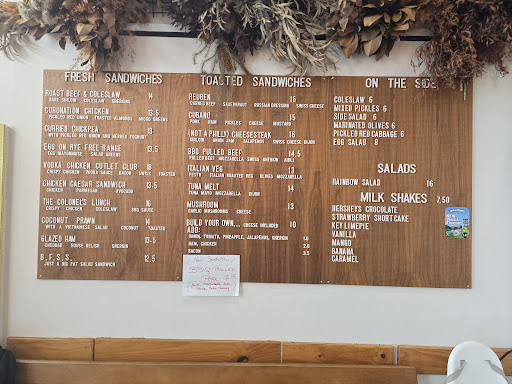 FRESH SANDWICHES
ROAST BEEF & COLESLAW 14
RARE SIRLOIN COLESLAW GHERKIN
CORONATION CHICKEN 13.5
PICKLED RED ONION TOASTED ALMONDS MICRO GREENS
CURRIED CHICKPEA 13
WITH PICKLED RED ONION AND HERBED YOGHURT
EGG ON RYE FREE RANGE 13.5
EGG MAYONNAISE SALAD GREENS
VODKA CHICKEN CUTLET CLUB 18
CRISPY CHICKEN VODKA SAUCE BACON SWISS TOASTED
CHICKEN CAESAR SANDWICH 13.5
CHICKEN PARMESAN AVOCADO
THE COLONEL'S LUNCH 16
CRISPY CHICKEN COLESLAW BBQ SAUCE
COCONUT PRAWN 14
WITH A VIETNAMESE SALAD COCONUT TOASTED
GLAZED HAM 13.5
CHEDDAR HOUSE RELISH GHERKIN
B.F.S.S. 12.5
JUST A BIG FAT SALAD SANDWICH
TOASTED SANDWICHES
REUBEN 15
CORNED BEEF SAUERKRAUT RUSSIAN DRESSING SWISS CHEESE
CUBANO 15
PORK HAM PICKLES CHEESE MUSTARD
(NOT A PHILLY) CHEESESTEAK 16
SIRLOIN ONION JAM JALAPENOS SWISS CHEESE DIJON
BBQ PULLED BEEF 14.5
PULLED BEEF MOZZARELLA SWISS GHERKIN AIOLI
ITALIAN VEG 13
PESTO ITALIAN ROASTED VEG OLIVES MOZZARELLA
TUNA MELT 14
TUNA MAYO MOZZARELLA DIJON
MUSHROOM 13
GARLIC MUSHROOMS CHEESE
BUILD YOUR OWN... CHEESE INCLUDED 10
ADD:
ONION, TOMATO, PINEAPPLE, JALAPENOS, GHERKIN 1.0
HAM, CHICKEN 2.0
BACON 3.5
ON THE SIDE
COLESLAW 6
MIXED PICKLES 6
SIDE SALAD 6
MARINATED OLIVES 6
PICKLED RED CABBAGE 6
EGG SALAD 8
SALADS
RAINBOW SALAD 16
MILK SHAKES 7.50
HERSHEY'S CHOCOLATE
STRAWBERRY SHORTCAKE
KEY LIMEPIE
VANILLA
MANGO
BANANA
CARAMEL